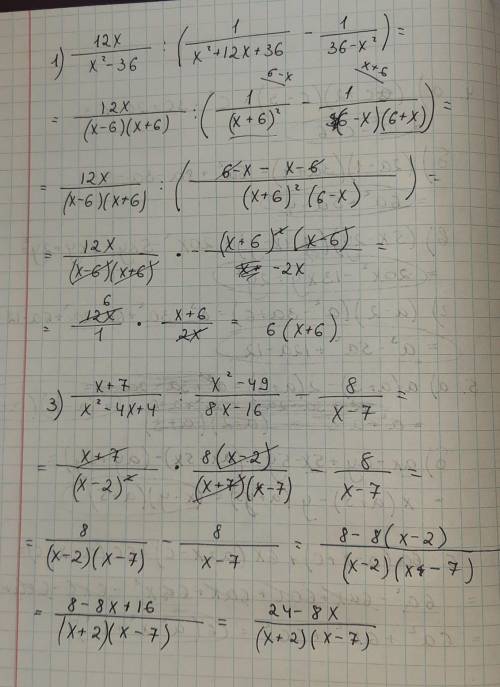 1) 12x / (x² - 36) : ( 1 / (x² + 12x + 36) - 1 / (36 - x²) ) =
6-x x+6
= 12x / ((x-6)(x+6)) : ( 1 / (x+6)² - 1 / ((6-x)(6+x)) ) =
= 12x / ((x-6)(x+6)) : ( (6-x - x-6) / ((x+6)² (6-x)) ) =
= 12x / ((x-6)(x+6)) · - (x+6)² (x-6) / (-2x) =
6
= 12x / 1 · (x+6) / 2x = 6(x+6)
3) (x+7) / (x² - 4x + 4) : (x² - 49) / (8x - 16) - 8 / (x-7) =
= (x+7) / (x-2)² · 8(x-2) / ((x+7)(x-7)) - 8 / (x-7) =
= 8 / ((x-2)(x-7)) - 8 / (x-7) = (8 - 8(x-2)) / ((x-2)(x-7))
= (8 - 8x + 16) / ((x+2)(x-7)) = (24 - 8x) / ((x+2)(x-7))